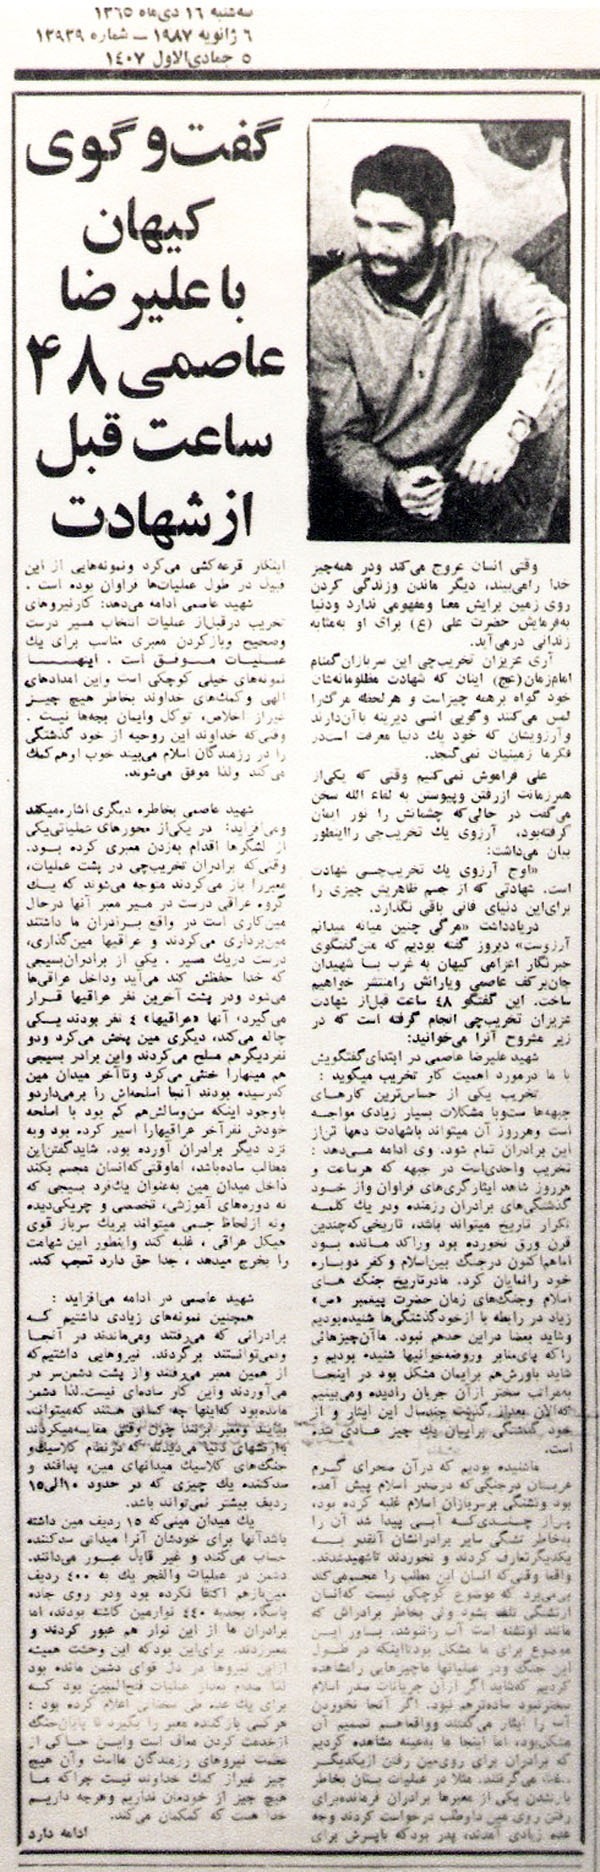 سه‌شنبه ۱۶ دی‌ماه ۱۳۶۵
۶ ژانویه ۱۹۸۷ – شماره ۱۲۹۲۹
۵ جمادی‌الاول ۱۴۰۷
گفت‌و گوی
کیهان
با علیرضا
عاصمی ۴۸
ساعت قبل
از شهادت
وقتی انسان عروج می‌کند ودر همه‌چیز
خدا رامی‌بیند، دیگر ماندن وزندگی کردن
روی زمین برایش معنا ومفهومی ندارد ودنیا
به‌فرمایش حضرت علی (ع) برای او به‌مثابه
زندانی درمی‌آید.
آری عزیزان تخریب‌چی این سربازان‌گمنام
امام‌زمان(عج) اینان که شهادت مظلومانه‌شان
خود گواه برهمه چیزاست و هرلحظه مرگ‌را
لمس می‌کنند وگویی انسی دیرینه باآن‌دارند
وآرزویشان که خود یک دنیا معرفت است‌در
فکرما زمینیان نمی‌گنجد.
علی فراموش نمی‌کنیم وقتی که یکی‌از
همرزمانت ازرفتن وپیوستن به لقاء الله سخن
می‌گفت در حالی‌که چشمانش را نور ایمان
گرفته‌بود، آرزوی یک تخریب‌چی رااینطور
بیان می‌داشت:
«اوج آرزوی یک تخریب‌چی شهادت
است. شهادتی که از جسم ظاهریش چیزی را
برای‌این دنیای فانی باقی نگذارد.
دریادداشت «مرگی چنین میانه میدانم
آرزوست» دیروز گفته بودیم که متن‌گفتگوی
خبرنگار اعزامی کیهان به غرب با شهیدان
جان‌برکف عاصمی ویارانش رامنتشر خواهیم
ساخت. این گفتگو ۴۸ ساعت قبل‌از شهادت
عزیزان تخریب‌چی انجام گرفته است که در
زیر مشروح آنرا می‌خوانید:
شهید علیرضا عاصمی در ابتدای‌گفتگویش
با ما درمورد اهمیت کار تخریب میگوید :
تخریب یکی از حساس‌ترین کارهای
جبهه‌ها ست‌وبا مشکلات بسیار زیادی مواجه
است وهرروز آن میتواند باشهادت دهها تن‌از
این برادران تمام شود. وی ادامه می‌دهد :
تخریب واحدی‌است در جبهه که هرساعت و
هرروز شاهد ایثارگری‌های فراوان واز خود
گذشتگی‌های برادران رزمنده ودر یک کلمه
تکرار تاریخ میتواند باشد، تاریخی‌که‌چندین
قرن ورق نخورده بود وراکد مانده بود
اماهم‌اکنون درجنگ بین‌اسلام وکفر دوباره
خود رانمایان کرد. مادرتاریخ جنگ های
اسلام وجنگ‌های زمان حضرت پیغمبر «ص»
زیاد در رابطه با ازخودگذشتگی‌ها شنیده‌بودیم
وشاید بعضا دراین حدهم نبود. ماآن‌چیزهائی
راکه پای‌منابر وروضه‌خوانیها شنیده بودیم و
شاید باورش‌هم برایمان مشکل بود در اینجا
به‌مراتب سختر ازآن جریان رادیده ومی‌بینیم
که‌الان بعداز گذشت چندسال این ایثار و از
خود گذشتگی برایمان یک چیز عادی شده
است.
ماشنیده بودیم که درآن صحرای گرم
عربستان درجنگی‌که درصدر اسلام پیش آمده
بود وتشنگی برسربازان اسلام غلبه کرده بود،
پس‌از چندی‌که آبی پیدا شد آن را
به‌خاطر تشنگی سایر برادرانشان آنقدر به
یکدیگرتعارف کردند و نخوردند تاشهیدشدند.
واقعا وقتی‌که انسان این مطلب را مجسم‌می‌کند
پی‌می‌برد که موضوع کوچکی نیست که‌انسان
ازتشنگی تلف بشود ولی بخاطر برادرانش که
مانند اوتشنه است آب راننوشد. باور این
موضوع برای ما مشکل بودتااینکه در طول
این جنگ ودر عملیاتها ماچیزهایی رامشاهده
کردیم که‌شاید اگر ازآن جریانات صدر اسلام
سختر‌نبود ساده‌ترهم نبود. اگر آنجا نخوردن
آب را ایثار می‌گفتند وواقعاهم تصمیم آن
مشکل‌بود، اما اینجا ما به‌عینه مشاهده کردیم
که برادران برای روی‌مین رفتن ازیکدیگر
می‌گرفتند. مثلا در عملیات بستان بخاطر
بازنشدن یکی از معبرها برادران فرمانده‌برای
رفتن روی مین داوطلب درخواست کردند وچه
عده زیادی آمدند، پدر بودکه باپسرش برای
ابتکار قرعه‌کشی می‌کرد ونمونه‌هایی از این
قبیل در طول عملیات‌ها فراوان بوده است .
شهید عاصمی ادامه می‌دهد: کارنیروهای
تخریب درقبل‌از عملیات انتخاب مسیر درست
وصحیح وبازکردن معبری مناسب برای یک
عملیات موفق است . اینها
نمونه‌های خیلی کوچکی است واین امدادهای
الهی وکمک‌های خداوند بخاطر هیچ چیز
غیراز اخلاص، توکل وایمان بچه‌ها نیست .
وقتی‌که خداوند این روحیه از خود گذشتگی
را در رزمندگان اسلام می‌بیند خوب اوهم‌کمک
می‌کند ولذا موفق می‌شوند.
شهید عاصمی بخاطره دیگری اشاره‌میکند
ومی‌افزاید: در یکی‌از محورهای عملیاتی‌یکی
از لشگرها اقدام به‌زدن معبری کرده بود.
وقتی‌که برادران تخریب‌چی در پشت عملیات،
معبررا باز می‌کردند متوجه می‌شوند که یک
گروه عراقی درست در مسیر معبر آنها درحال
مین‌کاری است در واقع برادران ما داشتند
مین‌برداری می‌کردند و عراقیها مین‌گذاری،
درست دریک مسیر . یکی از برادران‌بسیجی
که خدا حفظش کند می‌آید وداخل عراقی‌ها
می‌شود ودر پشت آخرین نفر عراقیها قرار
می‌گیرد، آنها «عراقیها» ۴ نفر بودند یکی
چاله می‌کند، دیگری مین پخش می‌کرد ودو
نفردیگرهم مسلح می‌کردند واین برادر بسیجی
هم مینهارا خنثی می‌کرد وتاآخر میدان مین
که‌رسیده بودند آنجا اسلحه‌اش را برمی‌داردو
باوجود اینکه سن‌وسالش‌هم کم بود با اسلحه
خودش نفرآخر عراقیهارا اسیر کرده بود وبه
نزد دیگر برادران آورده بود. شایدگفتن‌این
مطالب ساده‌باشد، اماوقتی‌که‌انسان مجسم بکند
داخل میدان مین به‌عنوان یک‌فرد بسیجی که
نه دوره‌های آموزشی، تخصصی و چریکی‌دیده
ونه ازلحاظ جسمی میتواند بریک سرباز قوی
هیکل عراقی ، غلبه کند واینطور این شهامت
را بخرج میدهد ، جدا حق دارد تعجب کند.
شهید عاصمی در ادامه می‌افزاید :
همچنین نمونه‌های زیادی داشتیم که
برادرانی که می‌رفتند ومی‌ماندند در آنجا
ونمی‌توانستند برگردند. نیروهایی داشتیم‌که
از همین معبر می‌رفتند واز پشت دشمن‌سر در
می‌آوردند واین کار ساده‌ای نیست.لذا دشمن
مانده‌بود که‌اینها چه کسانی هستند که‌میتوانند
بیایند ومعبر بزنند چون وقتی مقایسه‌میکردند
باارتشهای دنیا می‌دیدند که درنظام کلاسیک‌و
جنگ‌های کلاسیک میدانهای مین، پدافند و
سدکننده یک چیزی که در حدود ۱۰الی۱۵
ردیف بیشتر نمی‌تواند باشد.
یک میدان مینی‌که ۱۵ ردیف مین داشته
باشدآنها برای خودشان آنرا میدانی سدکننده
حساب می‌کنند و غیر قابل عبور می‌دانند.
دشمن در عملیات والفجر یک به ۴۰۰ ردیف
مین‌بازهم اکتفا نکرده بود ودر روی جاده
پاسگاه بجدیه ۴۴۰ نوارمین کاشته بودند، اما
برادران ما از این نوار هم عبور کردند و
معبرزدند. برای‌این بودکه این وحشت همیشه
ازاین نیروها در دل قوای دشمن مانده بود
لذا صدام بعداز عملیات فتح‌المبین بود که
برای یک عده طی سخنانی اعلام کرده بود :
هرکسی بازکننده معبر را بگیرد تا پایان‌جنگ
ازخدمت کردن معاف است واین حاکی از
عظمت نیروهای رزمندگان مااست وآن هیچ
چیز غیراز کمک خداوند نیست چراکه ما
هیچ چیز از خودمان نداریم وهرچه داریم
خدا هست که کمکمان می‌کند.
ادامه دارد